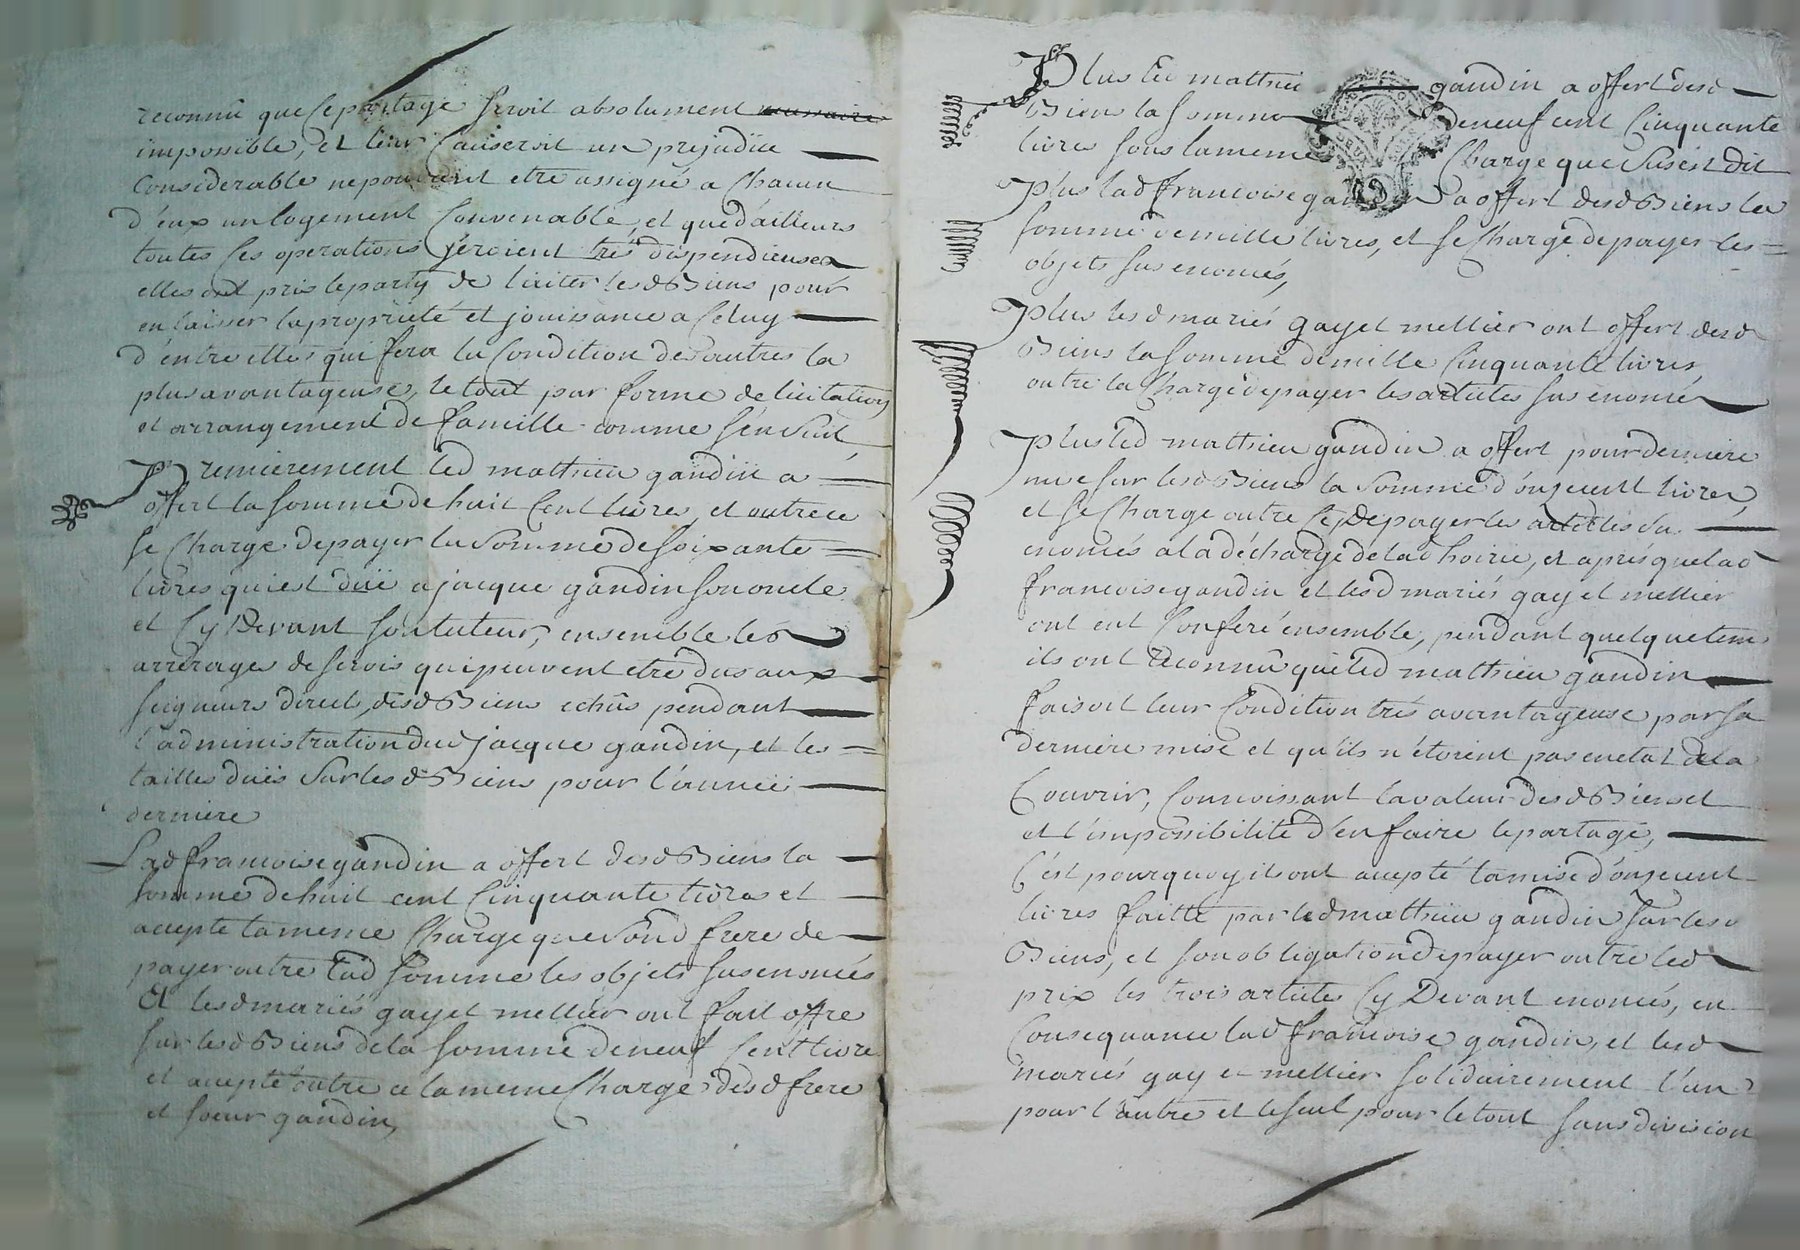 reconnû que ce partage seroit absolument
impossible, et leur Causeroit un prejudice
Considerable ne pouvant etre assigné a Chacun
d'eux un logement Convenable, et que d'ailleurs
toutes Ces operations seroient tres dispendieuses
elles ont pris le party de liciter lesd Biens pour
en laisser la proprieté et jouissance a Celuy
d'entre elles qui fera la Condition des autres la
plus avantageuse, le tout par forme de licitation
et arrangement de famille comme s'ensuit
Premierement led mathieu gandin a
offert la somme de huit Cent livres et outre ce
se Charge de payer la somme de soixante
livres qui est düe a jacque gandin son oncle
et Cy Devant son tuteur, ensemble les
arrerages de servis qui peuvent etre dus aux
seigneurs direct, desd Biens echûs pendant
l'administration dud jacque gandin, et les
tailles duës sur lesd Biens pour l'année
derniere
Lad francoise gandin a offert desd Biens la
somme de huit cent Cinquante livres et
acepte la meme Charge que sond frere de
payer outre lad somme les objets sus enoncés
Et lesd mariés gay et mellier ont fait offre
sur lesd Biens de la somme de neuf Cent livre
et acepte outre ce la meme Charge desd frere
et soeur gandin,
Plus led mathieu gandin a offert desd
Biens la somme de neuf cent Cinquante
livres sous la meme Charge que sus est dit
Plus lad francoise gandin a offert desd Biens la
somme de mille livres, et se Charge de payer les
objets sus enoncés,
Plus lesd mariés gay et mellier ont offert desd
Biens la somme de mille Cinquante livres,
outre la Charge de payer les articles sus enoncés
Plus led mathieu gandin a offert pour derniere
mise sur lesd Biens la somme d'onze cent livres,
et se Charge outre Ce, de payer les articles su
enoncés a la décharge de lad hoirie, et aprés que lad
francoise gandin et lesd mariés gay et mellier
ont eut Conferé ensemble, pendant quelque tems
ils ont reconnû que led mathieu gandin
faisoit leur Condition trés avantageuse par sa
derniere mise et qu'ils n'étoient pas en etat de la
Couvrir, Connoissant la valeur desd Biens et
et l'impossibilité d'en faire le partage,
C'est pourquoy ils ont acepté la mise d'onze cent
livres faitte par led mathieu gandin sur lesd
Biens, et son obligation de payer outre led
prix les trois articles Cy Devant enoncés, en
Consequance lad francoise gandin, et lesd
mariés gay et mellier solidairement l'un
pour l'autre et le seul pour le tout sans division